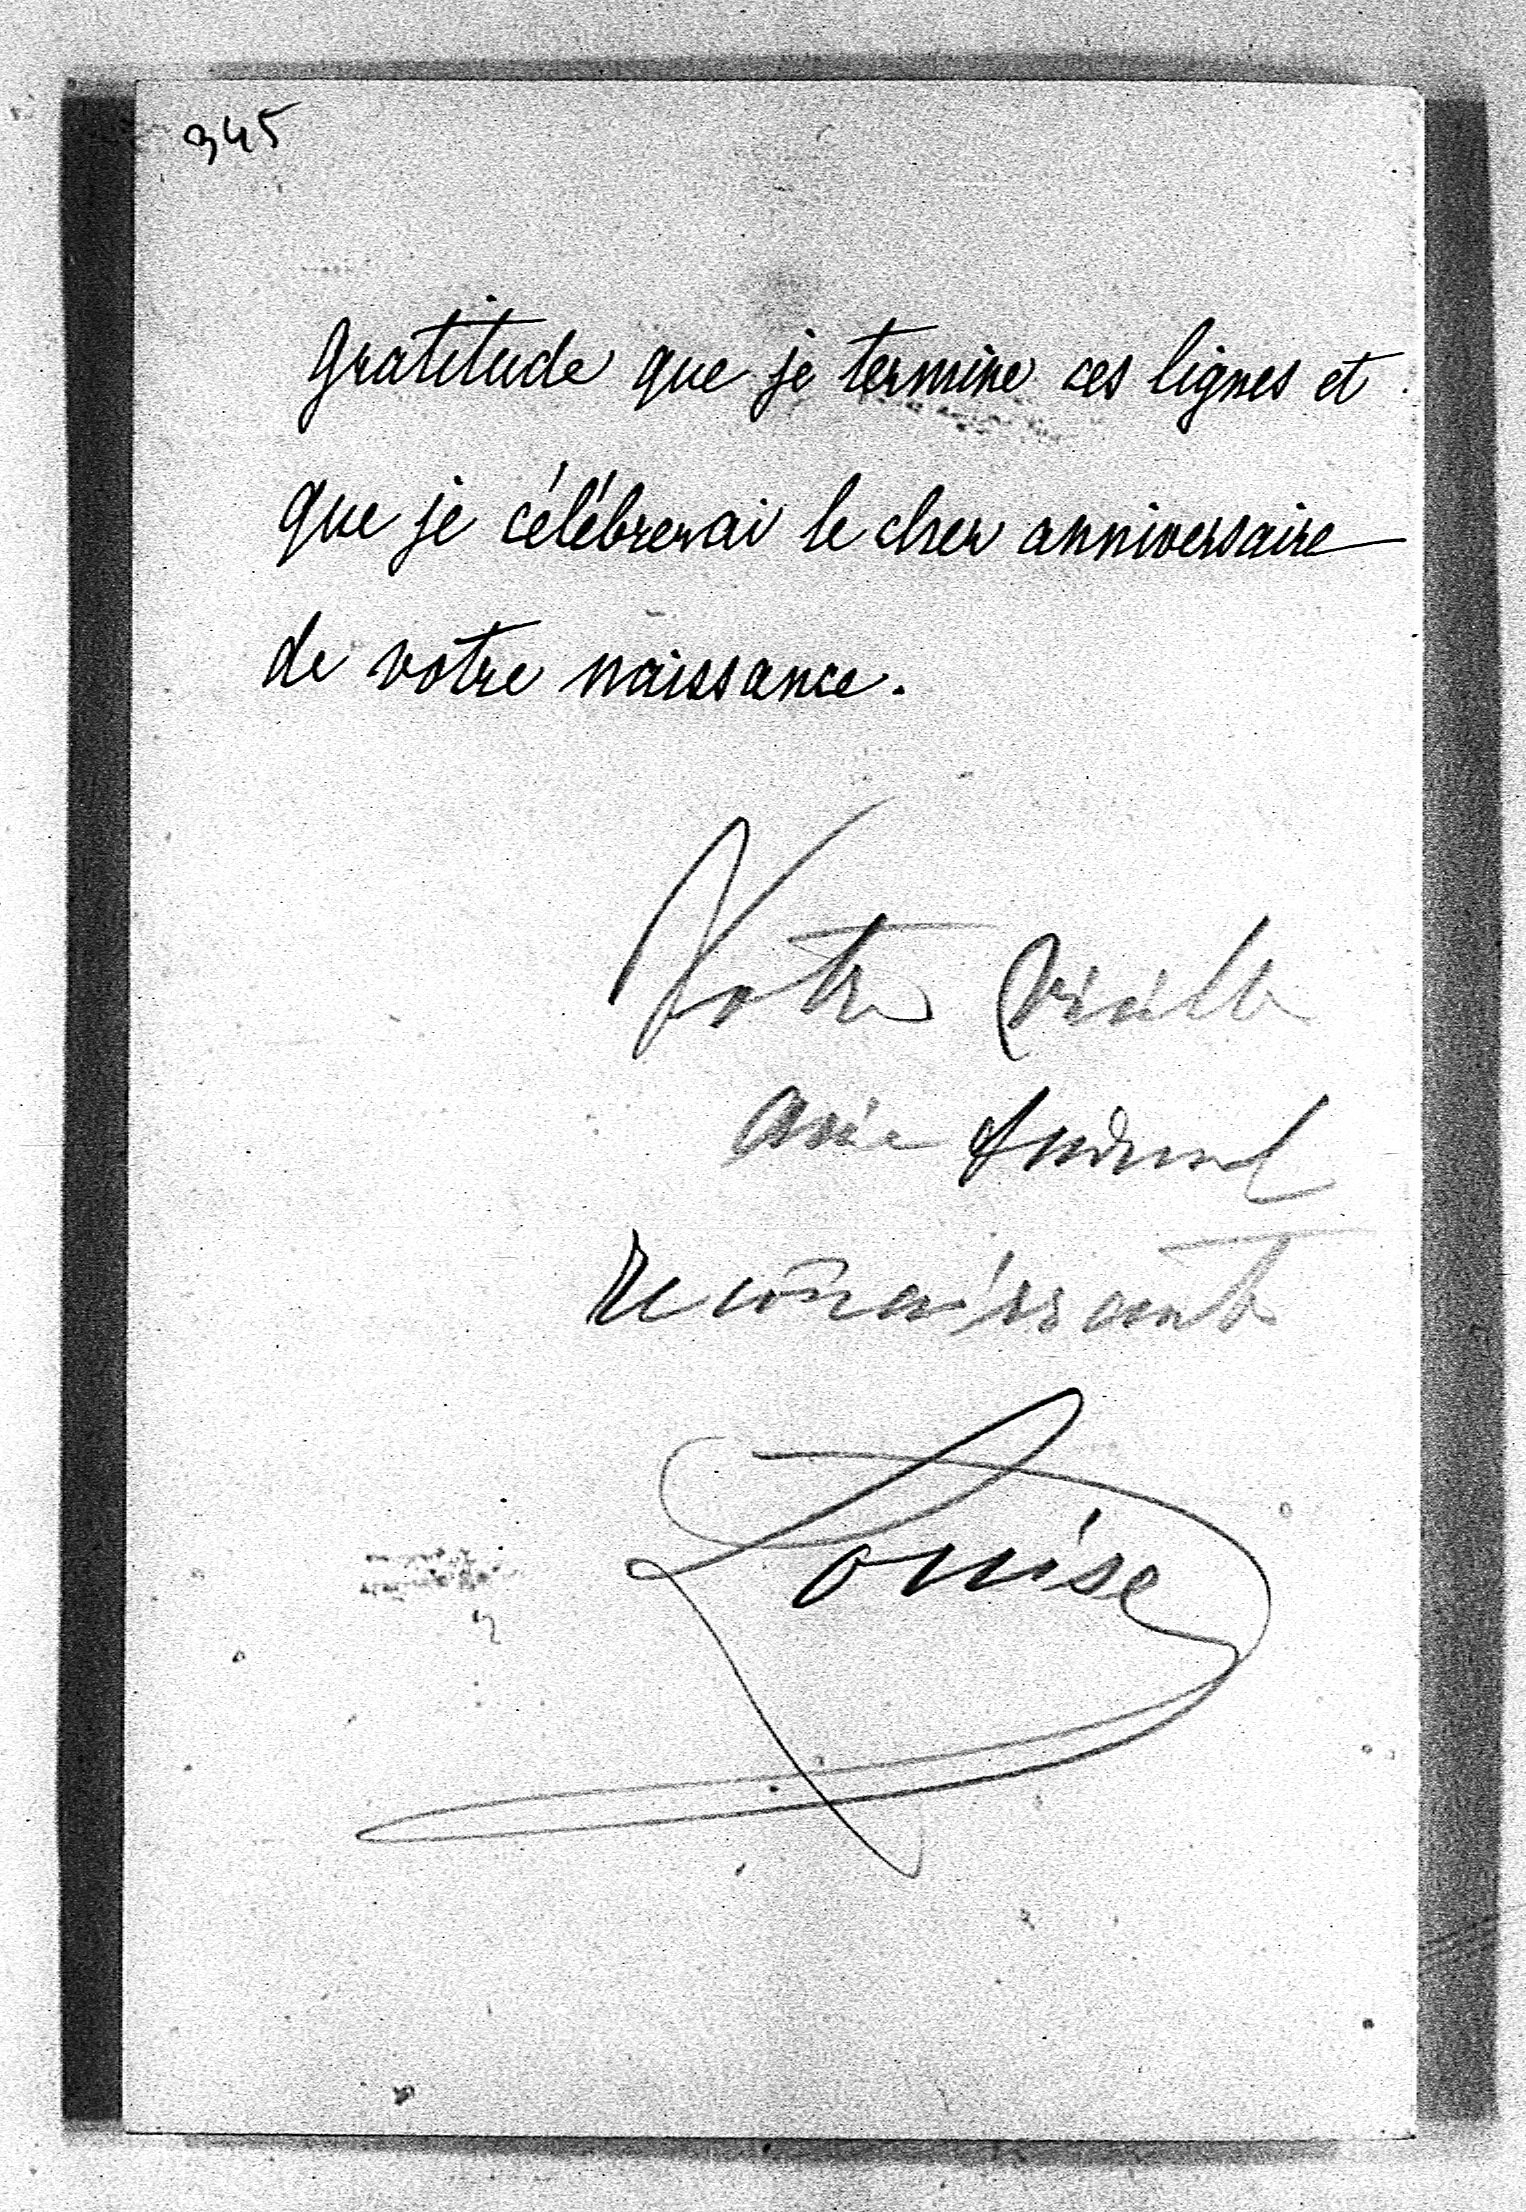 345
gratitude que je termine ces lignes et
que je célébrerai le cher anniversaire
de votre naissance.
Votre vieille
amie
reconnaissante
Louise